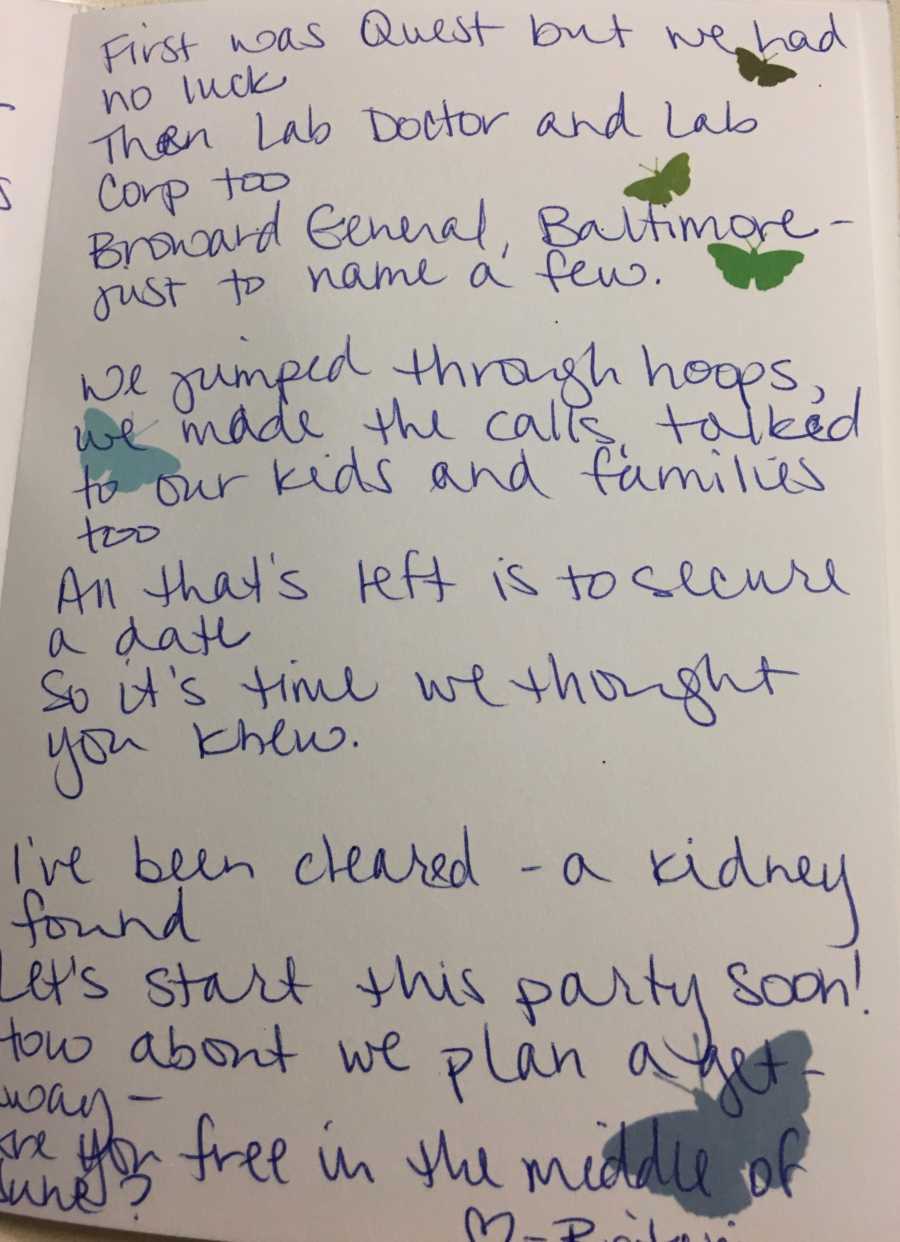 First was Quest but we had
no luck
Then Lab Doctor and Lab
Corp too
Broward General, Baltimore -
just to name a few.
We jumped through hoops,
we made the calls, talked
to our kids and families
too
All that's left is to secure
a date
So it's time we thought
you knew.
I've been cleared - a kidney
found
Let's start this party soon!
How about we plan a get-
away -
are you free in the middle of
June?